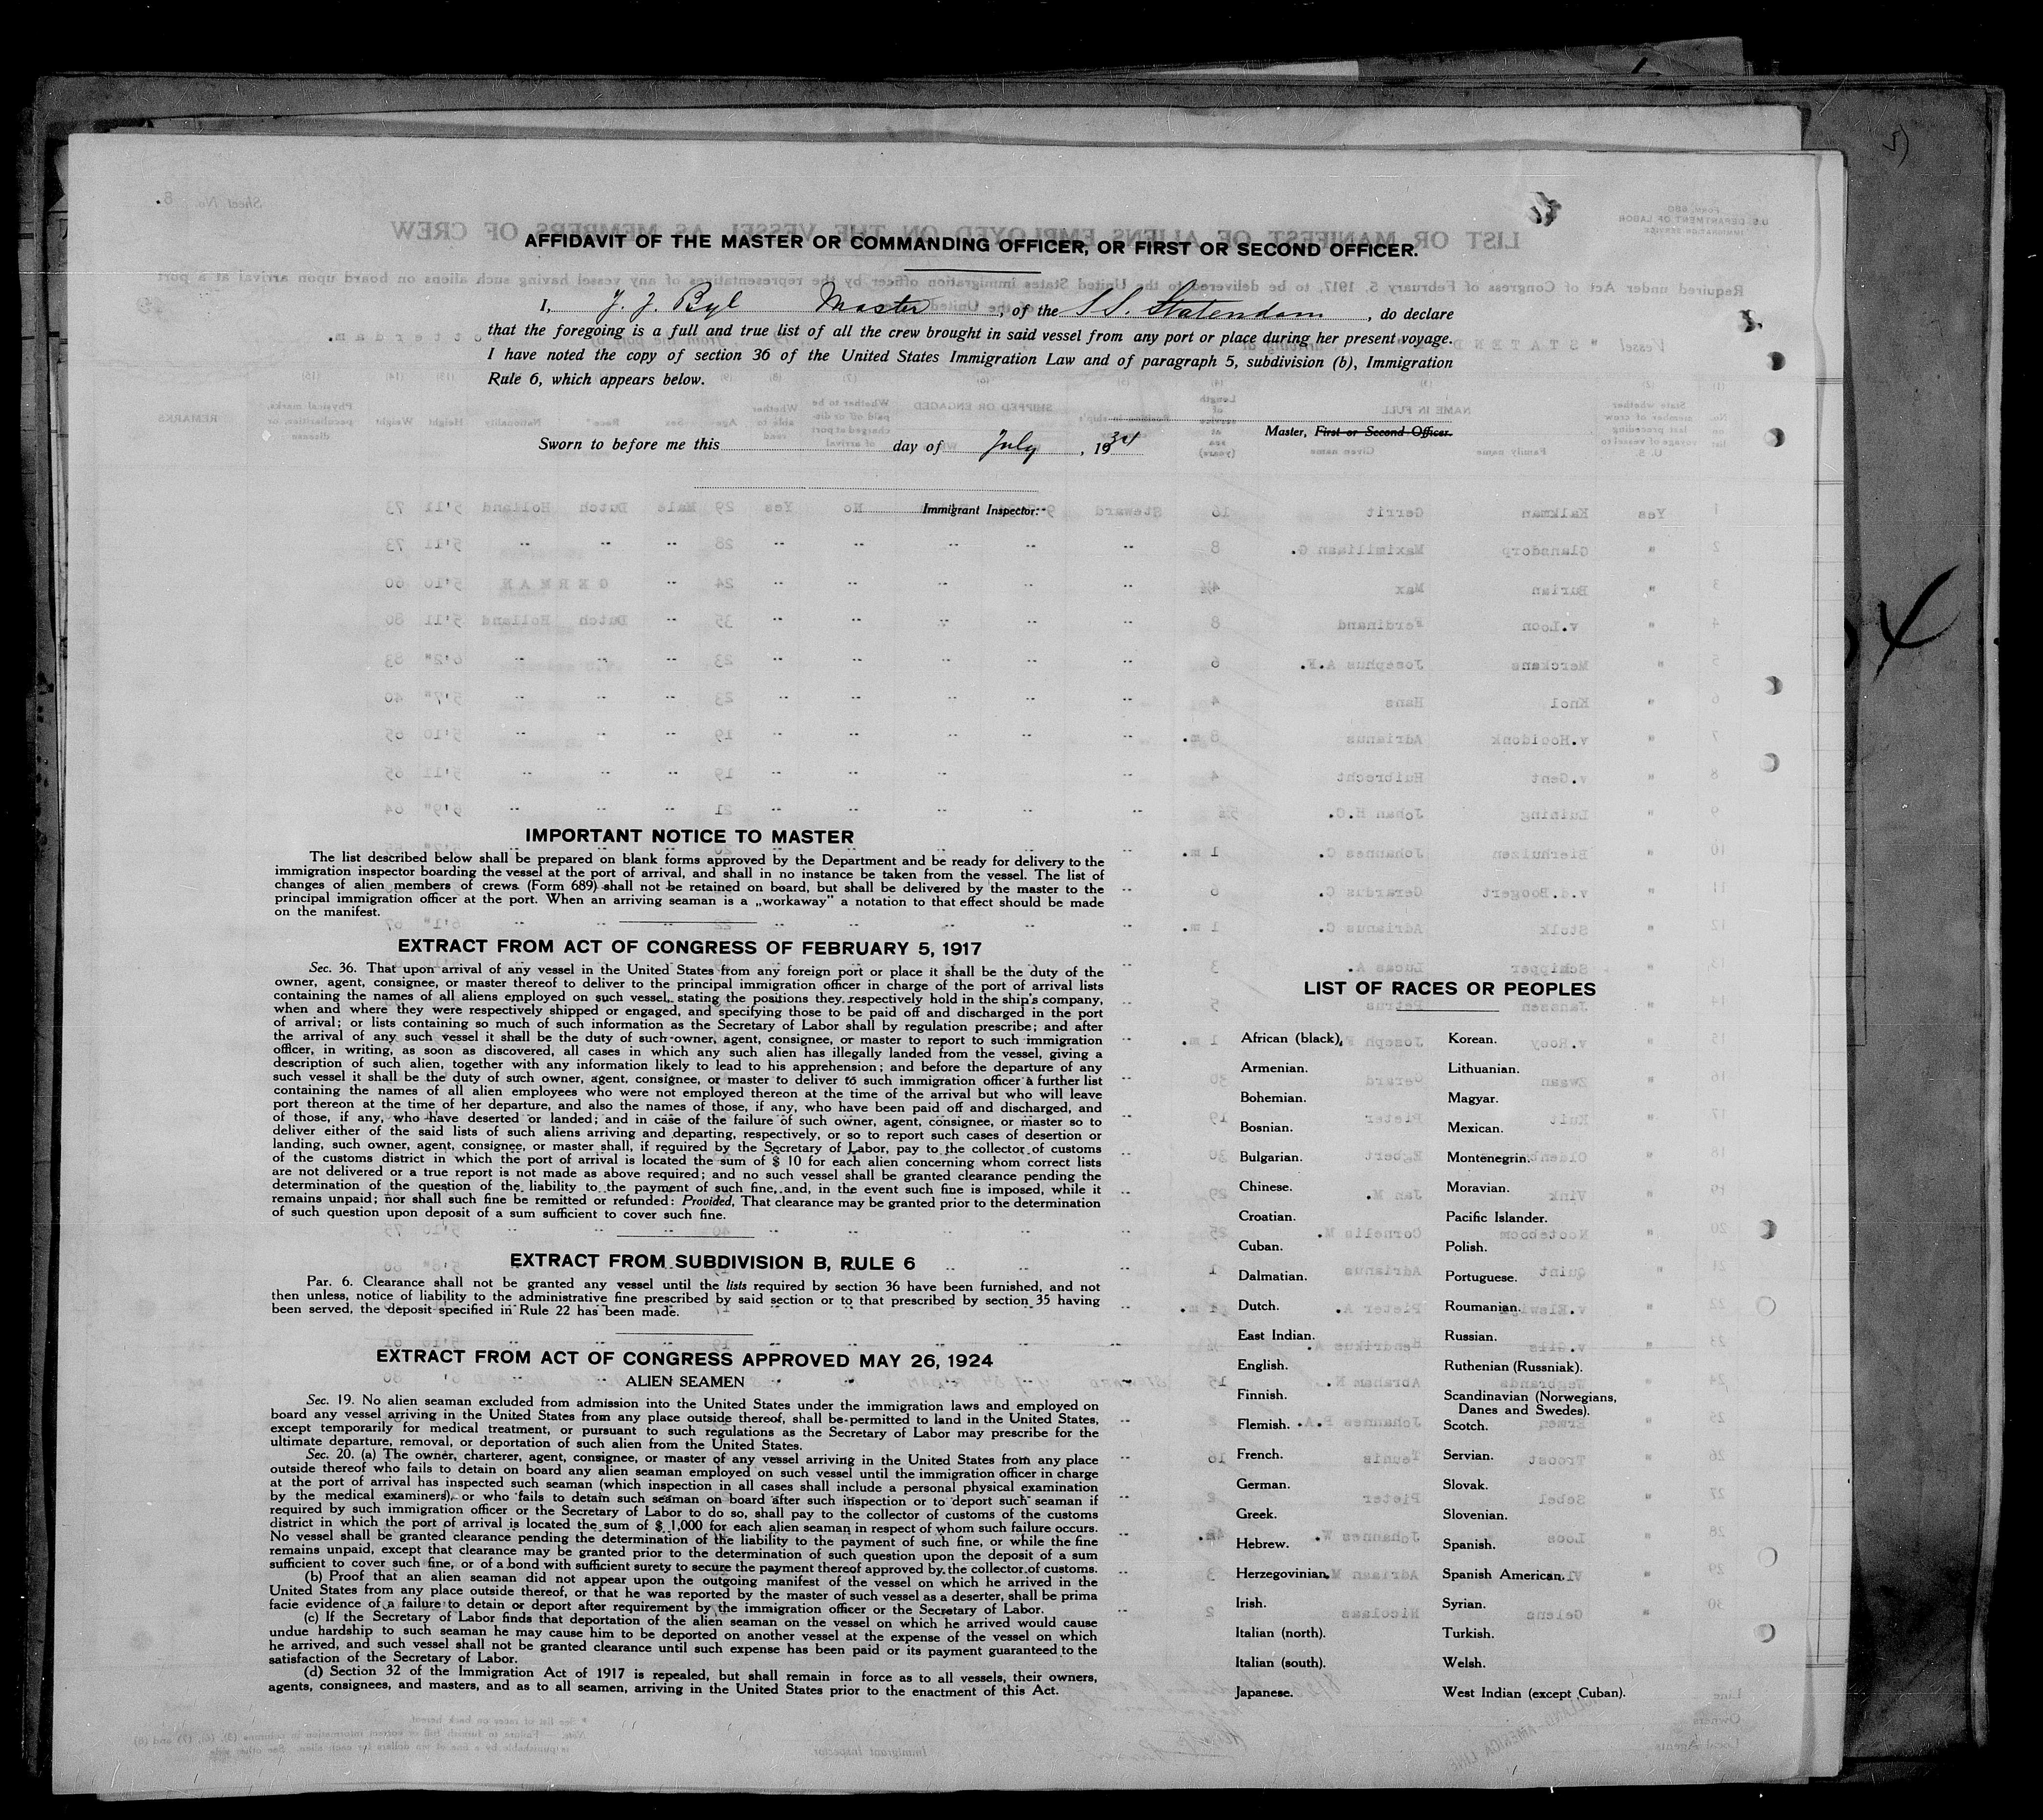 AFFIDAVIT OF THE MASTER OR COMMANDING OFFICER, OR FIRST OR SECOND OFFICER.
I, J. J. Byl Master, of the SS. Statendam, do declare
that the foregoing is a full and true list of all the crew brought in said vessel from any port or place during her present voyage.
I have noted the copy of section 36 of the United States Immigration Law and of paragraph 5, subdivision (b), Immigration
Rule 6, which appears below.
Master, First or Second Officer.
Sworn to before me this day of July, 1934
Immigrant Inspector.
IMPORTANT NOTICE TO MASTER
The list described below shall be prepared on blank forms approved by the Department and be ready for delivery to the
immigration inspector boarding the vessel at the port of arrival, and shall in no instance be taken from the vessel. The list of
changes of alien members of crews (Form 689) shall not be retained on board, but shall be delivered by the master to the
principal immigration officer at the port. When an arriving seaman is a „workaway” a notation to that effect should be made
on the manifest.
EXTRACT FROM ACT OF CONGRESS OF FEBRUARY 5, 1917
Sec. 36. That upon arrival of any vessel in the United States from any foreign port or place it shall be the duty of the
owner, agent, consignee, or master thereof to deliver to the principal immigration officer in charge of the port of arrival lists
containing the names of all aliens employed on such vessel, stating the positions they respectively hold in the ship's company,
when and where they were respectively shipped or engaged, and specifying those to be paid off and discharged in the port
of arrival; or lists containing so much of such information as the Secretary of Labor shall by regulation prescribe; and after
the arrival of any such vessel it shall be the duty of such owner, agent, consignee, or master to report to such immigration
officer, in writing, as soon as discovered, all cases in which any such alien has illegally landed from the vessel, giving a
description of such alien, together with any information likely to lead to his apprehension; and before the departure of any
such vessel it shall be the duty of such owner, agent, consignee, or master to deliver to such immigration officer a further list
containing the names of all alien employees who were not employed thereon at the time of the arrival but who will leave
port thereon at the time of her departure, and also the names of those, if any, who have been paid off and discharged, and
of those, if any, who have deserted or landed; and in case of the failure of such owner, agent, consignee, or master so to
deliver either of the said lists of such aliens arriving and departing, respectively, or so to report such cases of desertion or
landing, such owner, agent, consignee, or master shall, if required by the Secretary of Labor, pay to the collector of customs
of the customs district in which the port of arrival is located the sum of $ 10 for each alien concerning whom correct lists
are not delivered or a true report is not made as above required; and no such vessel shall be granted clearance pending the
determination of the question of the liability to the payment of such fine, and, in the event such fine is imposed, while it
remains unpaid; nor shall such fine be remitted or refunded: Provided, That clearance may be granted prior to the determination
of such question upon deposit of a sum sufficient to cover such fine.
EXTRACT FROM SUBDIVISION B, RULE 6
Par. 6. Clearance shall not be granted any vessel until the lists required by section 36 have been furnished, and not
then unless, notice of liability to the administrative fine prescribed by said section or to that prescribed by section 35 having
been served, the deposit specified in Rule 22 has been made.
EXTRACT FROM ACT OF CONGRESS APPROVED MAY 26, 1924
ALIEN SEAMEN
Sec. 19. No alien seaman excluded from admission into the United States under the immigration laws and employed on
board any vessel arriving in the United States from any place outside thereof, shall be permitted to land in the United States,
except temporarily for medical treatment, or pursuant to such regulations as the Secretary of Labor may prescribe for the
ultimate departure, removal, or deportation of such alien from the United States.
Sec. 20. (a) The owner, charterer, agent, consignee, or master of any vessel arriving in the United States from any place
outside thereof who fails to detain on board any alien seaman employed on such vessel until the immigration officer in charge
at the port of arrival has inspected such seaman (which inspection in all cases shall include a personal physical examination
by the medical examiners), or who fails to detain such seaman on board after such inspection or to deport such seaman if
required by such immigration officer or the Secretary of Labor to do so, shall pay to the collector of customs of the customs
district in which the port of arrival is located the sum of $ 1,000 for each alien seaman in respect of whom such failure occurs.
No vessel shall be granted clearance pending the determination of the liability to the payment of such fine, or while the fine
remains unpaid, except that clearance may be granted prior to the determination of such question upon the deposit of a sum
sufficient to cover such fine, or of a bond with sufficient surety to secure the payment thereof approved by the collector of customs.
(b) Proof that an alien seaman did not appear upon the outgoing manifest of the vessel on which he arrived in the
United States from any place outside thereof, or that he was reported by the master of such vessel as a deserter, shall be prima
facie evidence of a failure to detain or deport after requirement by the immigration officer or the Secretary of Labor.
(c) If the Secretary of Labor finds that deportation of the alien seaman on the vessel on which he arrived would cause
undue hardship to such seaman he may cause him to be deported on another vessel at the expense of the vessel on which
he arrived, and such vessel shall not be granted clearance until such expense has been paid or its payment guaranteed to the
satisfaction of the Secretary of Labor.
(d) Section 32 of the Immigration Act of 1917 is repealed, but shall remain in force as to all vessels, their owners,
agents, consignees, and masters, and as to all seamen, arriving in the United States prior to the enactment of this Act.
LIST OF RACES OR PEOPLES
African (black).
Armenian.
Bohemian.
Bosnian.
Bulgarian.
Chinese.
Croatian.
Cuban.
Dalmatian.
Dutch.
East Indian.
English.
Finnish.
Flemish.
French.
German.
Greek.
Hebrew.
Herzegovinian.
Irish.
Italian (north).
Italian (south).
Japanese.
Korean.
Lithuanian.
Magyar.
Mexican.
Montenegrin.
Moravian.
Pacific Islander.
Polish.
Portuguese.
Roumanian.
Russian.
Ruthenian (Russniak).
Scandinavian (Norwegians,
Danes and Swedes).
Scotch.
Servian.
Slovak.
Slovenian.
Spanish.
Spanish American.
Syrian.
Turkish.
Welsh.
West Indian (except Cuban).